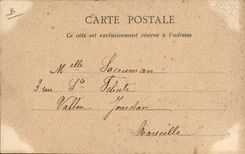 CARTE POSTALE
Ce côté est exclusivement réservé à l'adresse
Melle Lacouman
3 rue Ste
Vallon
Marseille